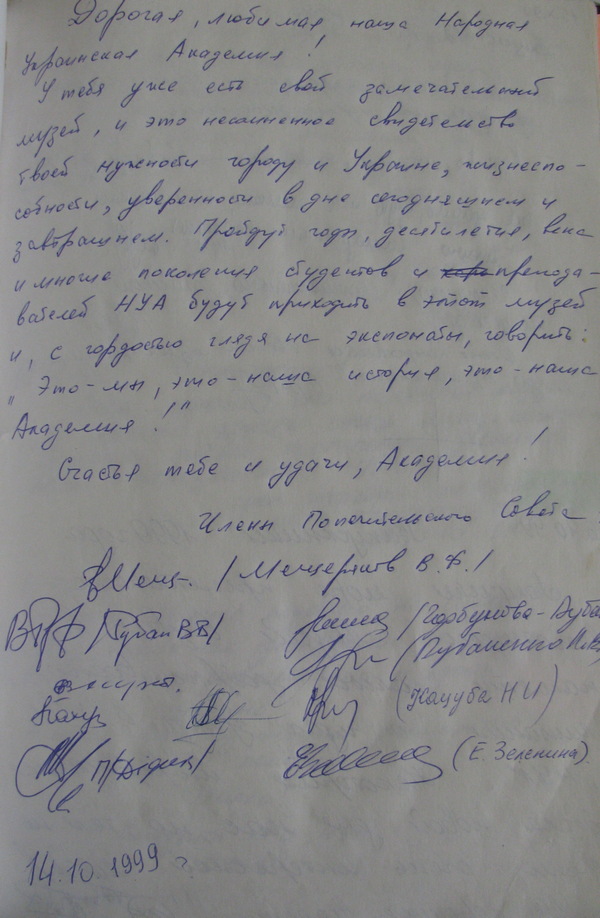 Дорогая, любимая наша Народная
Украинская Академия!
У тебя уже есть свой замечательный
музей, и это несомненное свидетельство
твоей нужности городу и Украине, жизнеспо-
собности, уверенности в дне сегодняшнем и
завтрашнем. Пройдут годы, десятилетия, века
и многие поколения студентов и препода-
вателей НУА будут приходить в этот музей
и, с гордостью глядя на экспонаты, говорить:
"Это-мы, это-наша история, это-наша
Академия!"
Счастья тебе и удачи, Академия!
Члены Попечительского Совета
/Мещеряков В.Ф./
/Губан ВВ/ /Горбунова-Рубан
(Рубаненко
(Кацуба НИ)
(Е. Зеленина)
14.10.1999 г